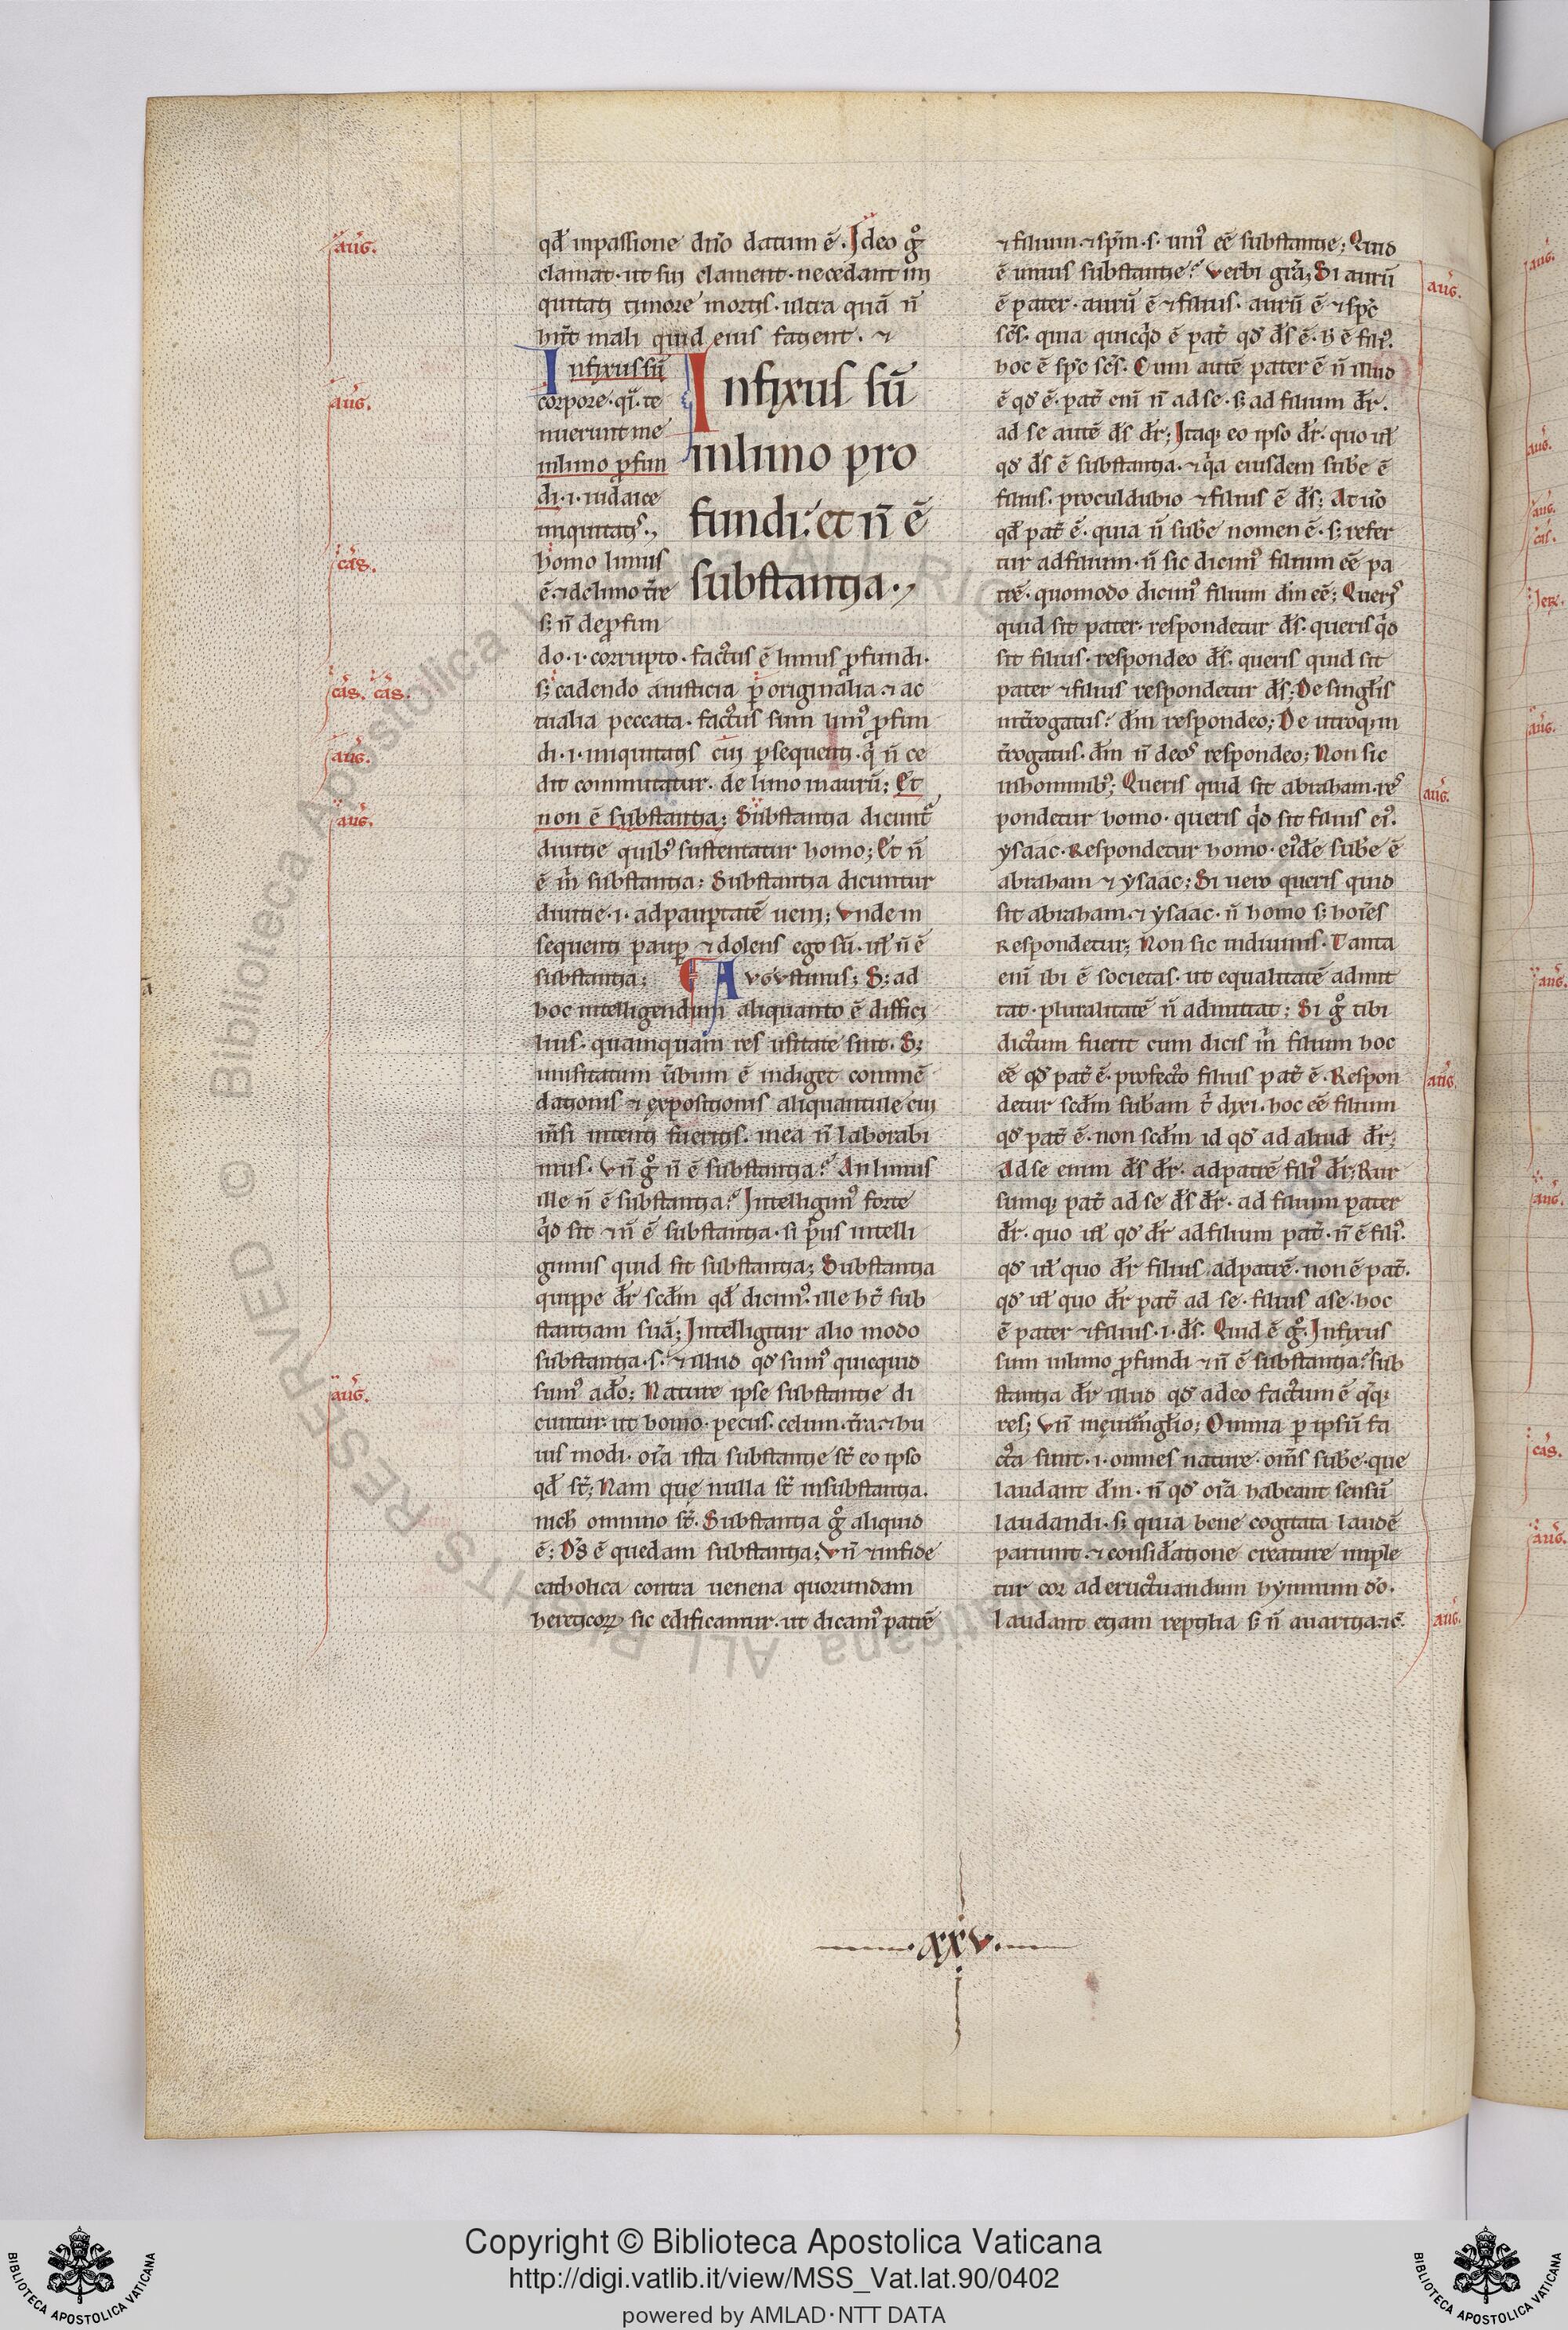 qd̄ inpassione dn̄o datum ē. Ideo gͦ
clamat. ut sui clament. ne cedant ini
quitati timore mortis. ultra quā n̄
hn̄t mali quid eius faciant. ⁊
Infixus sū
corpore. qi. te
nuerunt me
inlimo p̱fun
di. i. iudaice
iniquitatis.
homo limus
ē. ⁊ de limo tr̄e
s; n̄ de p̱fun
Infixus sū
inlimo pro
fundi: et n̄ ē
substantia.
do. i. corrupto. factus ē limus p̱fundi.
s; cadendo aiusticia p̱ originalia ⁊ ac
tualia peccata. factus sum lim᷒ p̱fun
di. i. iniquitatis
dit commutatur. de limo inaurū; Et
non ē substantia; Substantia dicunt᷒
diuitie quib᷒ sustentatur homo; Et n̄
ē in substantia: Substantia dicuntur
diuitie. i. ad paup̱tatē ueni; Vnde in
sequenti paup̱ ⁊ dolens ego sū. ul̄ n̄ ē
substantia; Avgvstinus; S; ad
hoc intelligendum aliquanto ē diffici
lius. quamquam res usitate sint. S;
inusitatum u̅bum ē indiget commē
dationis ⁊ expositionis aliquantule cui
nisi intenti fueritis. mea n̄ laborabi
mus. Vn̄ gͦ n̄ ē substantia? An limus
ille n̄ ē substantia? Intelligim᷒ forte
qͥd sit ⁊ n̄ ē substantia. si pͥus intelli
gimus quid sit substantia; Substantia
quippe dr̄ scdm̄ qd̄ dicim᷒. ille hȝ sub
stantiam suā; Intelligitur alio modo
substantia. s. ⁊ illud qd̕ sum᷒ quicquid
sum᷒ ad̄o; Nature ipse substantie di
cuntur. ut homo. pecus. celum. tr̄a. ⁊ hu
ius modi. oīa ista substantie st̄ eo ipso
qd̄ st̄; Nam quę nulla st̄ insubstantia.
nich̄ omnino st̄. Substantia gͦ aliquid
ē; Ds̄ ē quedam substantia; Vn̄ ⁊ infide
catholica contra uenena quorundam
hereticoꝝ sic edificantur. ut dicam᷒ patrē
⁊ filium. ⁊ spm̄. s. uni᷒ eē substantie; Quid
ē unius substantie? Verbi grā; Si aurū
ē pater. aurū ē ⁊ filius. aurū ē ⁊ spc̄
sc̄s. quia quicqͥd ē pat̄ qd̕ ds̄ ē. h̄ ē fili᷒.
hoc ē spc̄ sc̄s. Cum autē pater ē n̄ illud
ē qd̕ ē. pat̄ eni n̄ ad se. s; ad filium dr̄.
ad se autē ds̄ dr̄; Itaq; eo ipso dr̄. quo ul̄
qd̕ ds̄ ē substantia. ⁊ qͥa eiusdem sub̄e ē
filius. proculdubio ⁊ filius ē ds̄; At uͦ
qd̄ pat̄ ē. quia n̄ sub̄e nomen ē. s; refer
tur ad filium. n̄ sic dicim᷒ filium eē pa
trē. quomodo dicim᷒ filium dm̄ eē; Queris
quid sit pater. respondetur ds̄. queris qͥd
sit filius. respondeo ds̄. queris quid sit
pater ⁊ filius respondetur ds̄; De singlis
int̄rogatus? dm̄ respondeo; De utroq; in
t̄rogatus. dm̄ n̄ deos respondeo; Non sic
inhominib᷒; Queris quid sit abraham. res
pondetur homo. queris qͥd sit filius ei᷒.
ysaac. Respondetur homo. ei᷒de sub̄e ē
abraham ⁊ ysaac; Si uero queris quid
sit abraham. ⁊ ysaac. n̄ homo s; hoīes
Respondetur; Non sic indiuinis. Tanta
eni ibi ē societas. ut equalitatē admit
tat. pluralitatē n̄ admittat; Si gͦ tibi
dictum fuerit cum dicis in filium hoc
eē qd̕ pat̄ ē. profecto filius pat̄ ē. Respon
detur scdm̄ sub̄am tͥ dixi. hoc eē filium
qd̕ pat̄ ē. non scdm̄ id qd̕ ad aliud dr̄;
Ad se enim ds̄ dr̄. ad patrē fili᷒ dr̄; Rur
sumq; pat̄ ad se ds̄ dr̄. ad filium pater
dr̄. quo ul̄ qd̕ dr̄ ad filium pat̄. n̄ ē fili᷒.
qd̕ ul̄ quo dr̄ filius ad patrē. non ē pat̄.
qd̕ ul̄ quo dr̄ pat̄ ad se. filius ase. hoc
ē pater ⁊ filius. i. ds̄. Quid ē gͦ. Infixus
sum inlimo p̱fundi ⁊ n̄ ē substantia? Sub
stantia dr̄ illud qd̕ adeo factum ē
res; Omnia p̱ ipsū fa
cta sunt. i. omnes nature. om̄s sub̄e. que
laudant dm̄. n̄ qd̕ oīa habeant sensū
laudandi. s; quia bene cogitata laudē
pariunt. ⁊ consid̄atione creature imple
tur cor ad eructuandum hymnum dō.
laudant etiam reptilia s; n̄ auaritia.
.xxv.
aug̅.
aug̅.
cas̅.
cas̅. cas̅.
aug̅.
aug̅.
aug̅.
aug̅.
aug̅.
aug̅.
aug̅.
Copyright © Biblioteca Apostolica Vaticana
http://digi.vatlib.it/view/MSS_Vat.lat.90/0402
powered by AMLAD·NTT DATA
BIBLIOTECA APOSTOLICA VATICANA
BIBLIOTECA APOSTOLICA VATICANA
© Biblioteca Apostolica Vaticana ALL RIGHTS RESERVED